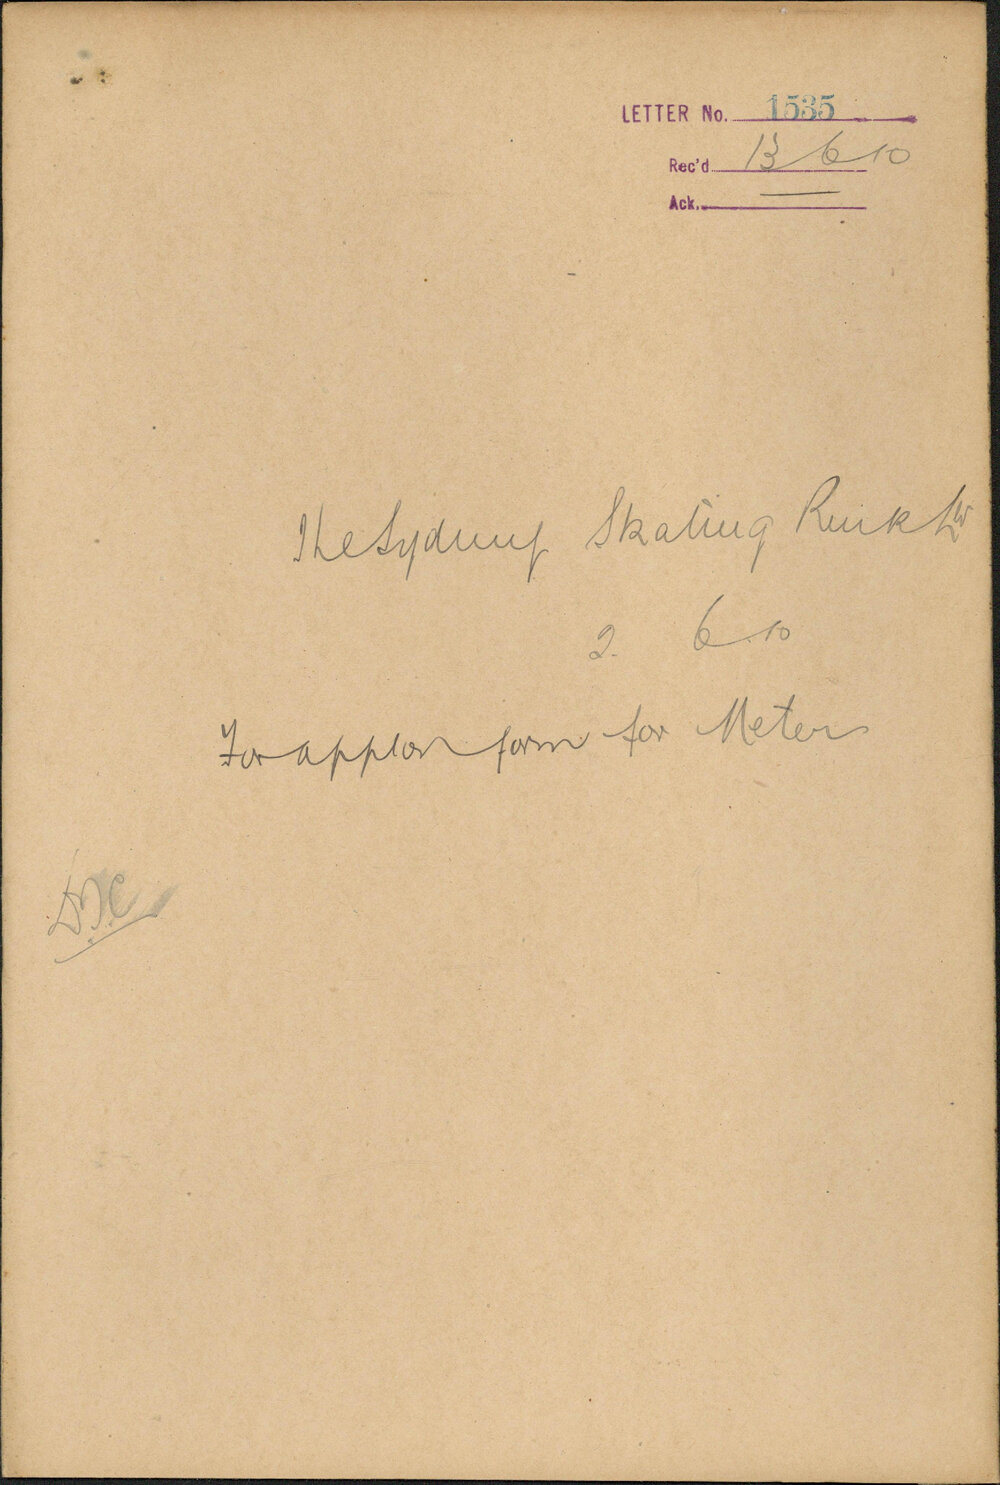 LETTER No. 1535
Rec'd 13 6 10
Ack. —
The Sydney Skating Rink Ltd
2. 6. 10
For applon form for Meter